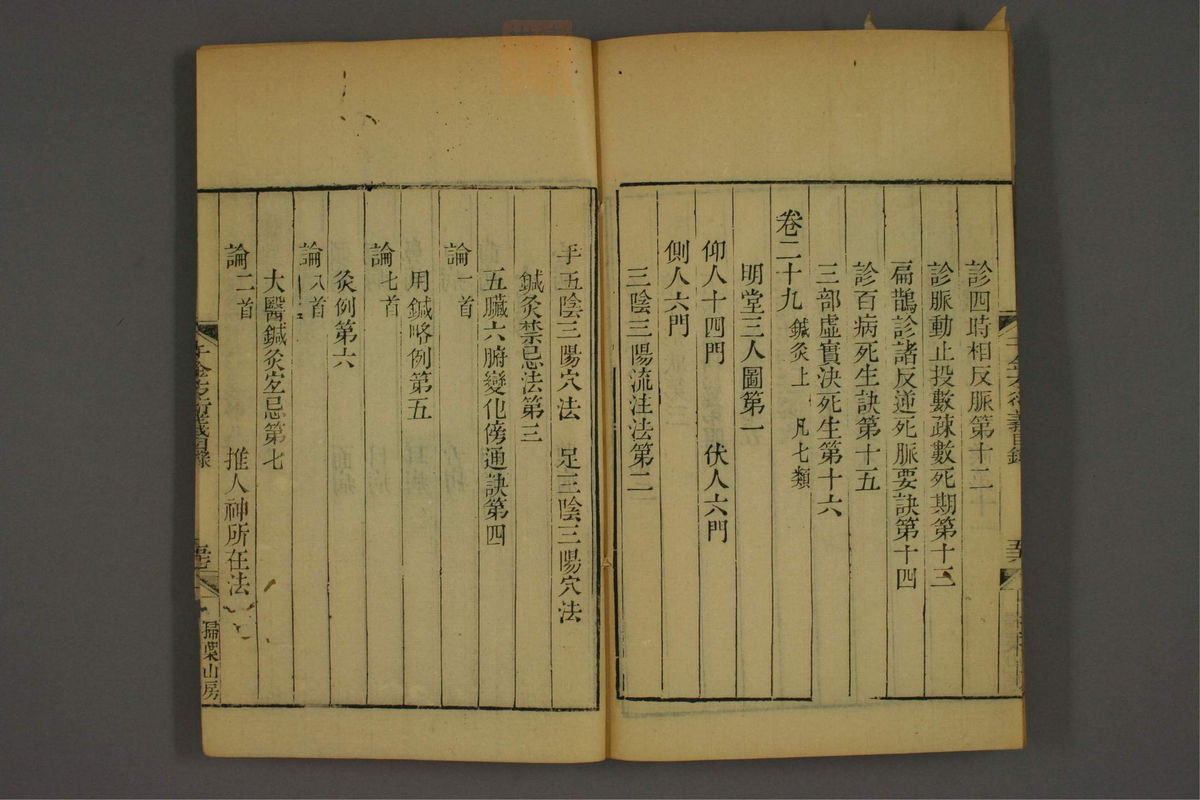 診四時相反脈第十二
診脈動止投數疎數死期第十三
扁鵲診諸反逆死脈要訣第十四
診百病死生訣第十五
三部虛實決死生第十六
卷二十九 鍼灸上 凡七類
明堂三人圖第一
仰人十四門 伏人六門
側人六門
三陰三陽流注法第二
手五陰三陽穴法 足三陰三陽穴法
鍼灸禁忌法第三
五臟六腑變化傍通訣第四
論一首
用鍼略例第五
論七首
灸例第六
論八首
大醫鍼灸宐忌第七
論二首 推人神所在法
掃葉山房